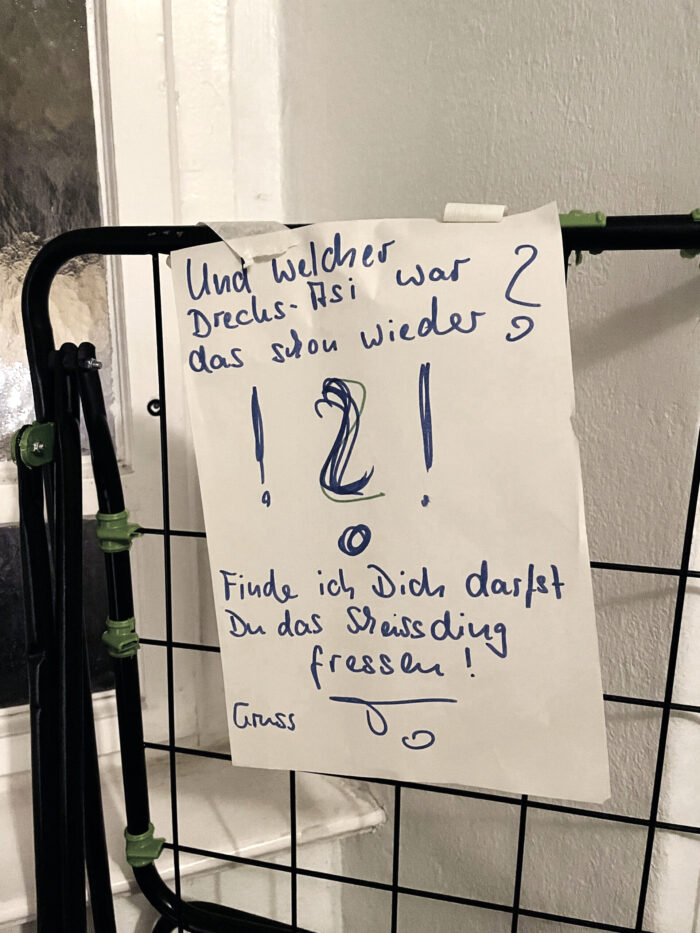 Und welcher
Drecks-Asi war
das schon wieder ?
! ? !
Finde ich Dich darfst
Du das Scheissding
fressen !
Gruss